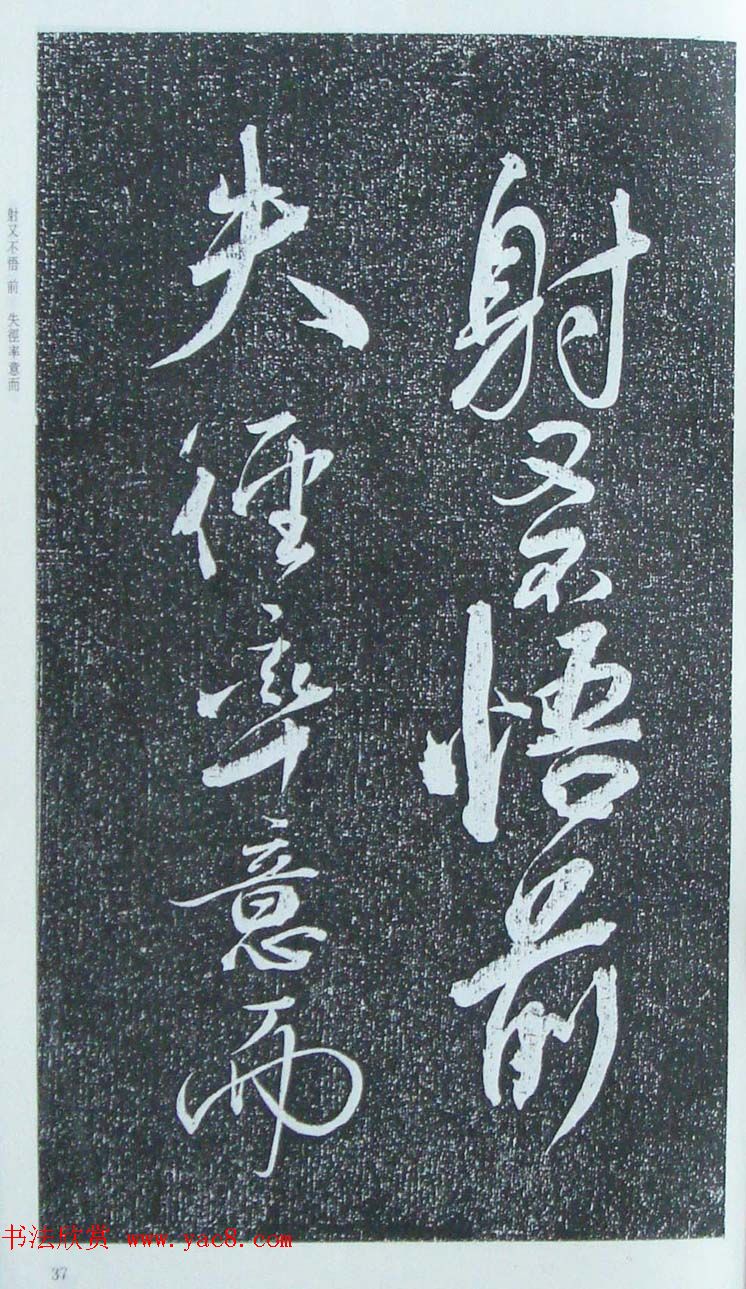 射又不悟前
失徑率意而
射又不悟 前 失徑率意而
书法欣赏 www.yac8.com
37